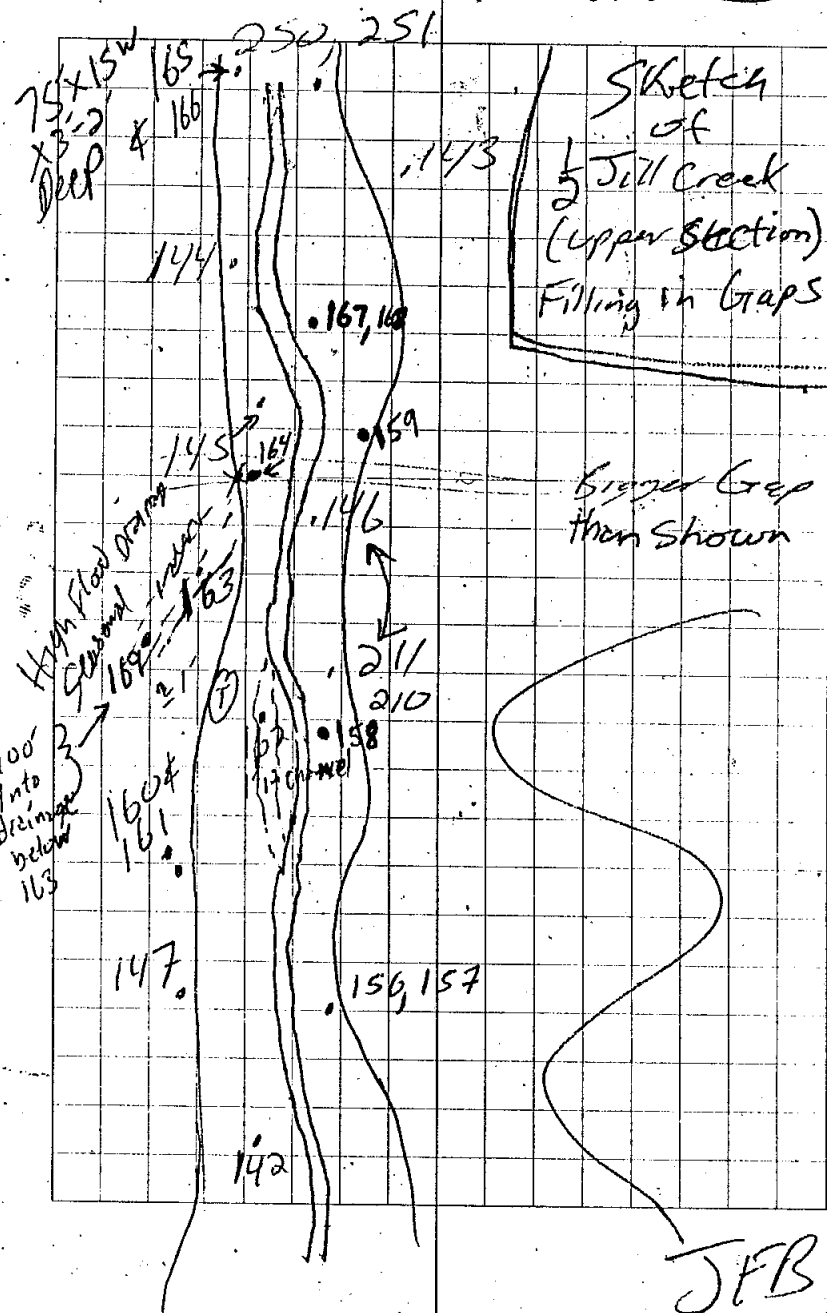 250, 251
75' x 15' W
x 3'-2'
Deep
165
& 166
.143
Sketch
of
1/2 Jill Creek
(upper Section)
Filling in Gaps
144
167, 168
159
145
164
.146
Bigger Gap
than Shown
High Flow
Seasonal
163
169
211
210
158
channel
100'
into
drainage
below
163
160 &
161
147
156, 157
142
JFB